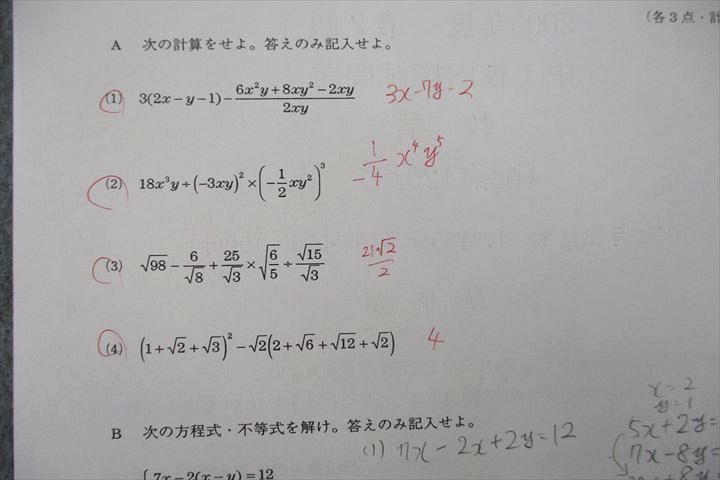 (各3点・計
A 次の計算をせよ。答えのみ記入せよ。
(1) 3(2x−y−1)−(6x²y+8xy²−2xy)/(2xy) 3x−7y−2
(2) 18x³y÷(−3xy)²×(−1/2 xy²)³ −1/4 x⁴y⁵
(3) √98−6/√8+25/√3×√(6/5)÷√15/√3 21√2/2
(4) (1+√2+√3)²−√2(2+√6+√12+√2) 4
x=2
y=1
B 次の方程式・不等式を解け。答えのみ記入せよ。
5x+2y=
(1) 7x−2x+2y=12
7x−8y=
{7x−2(x−y)=12